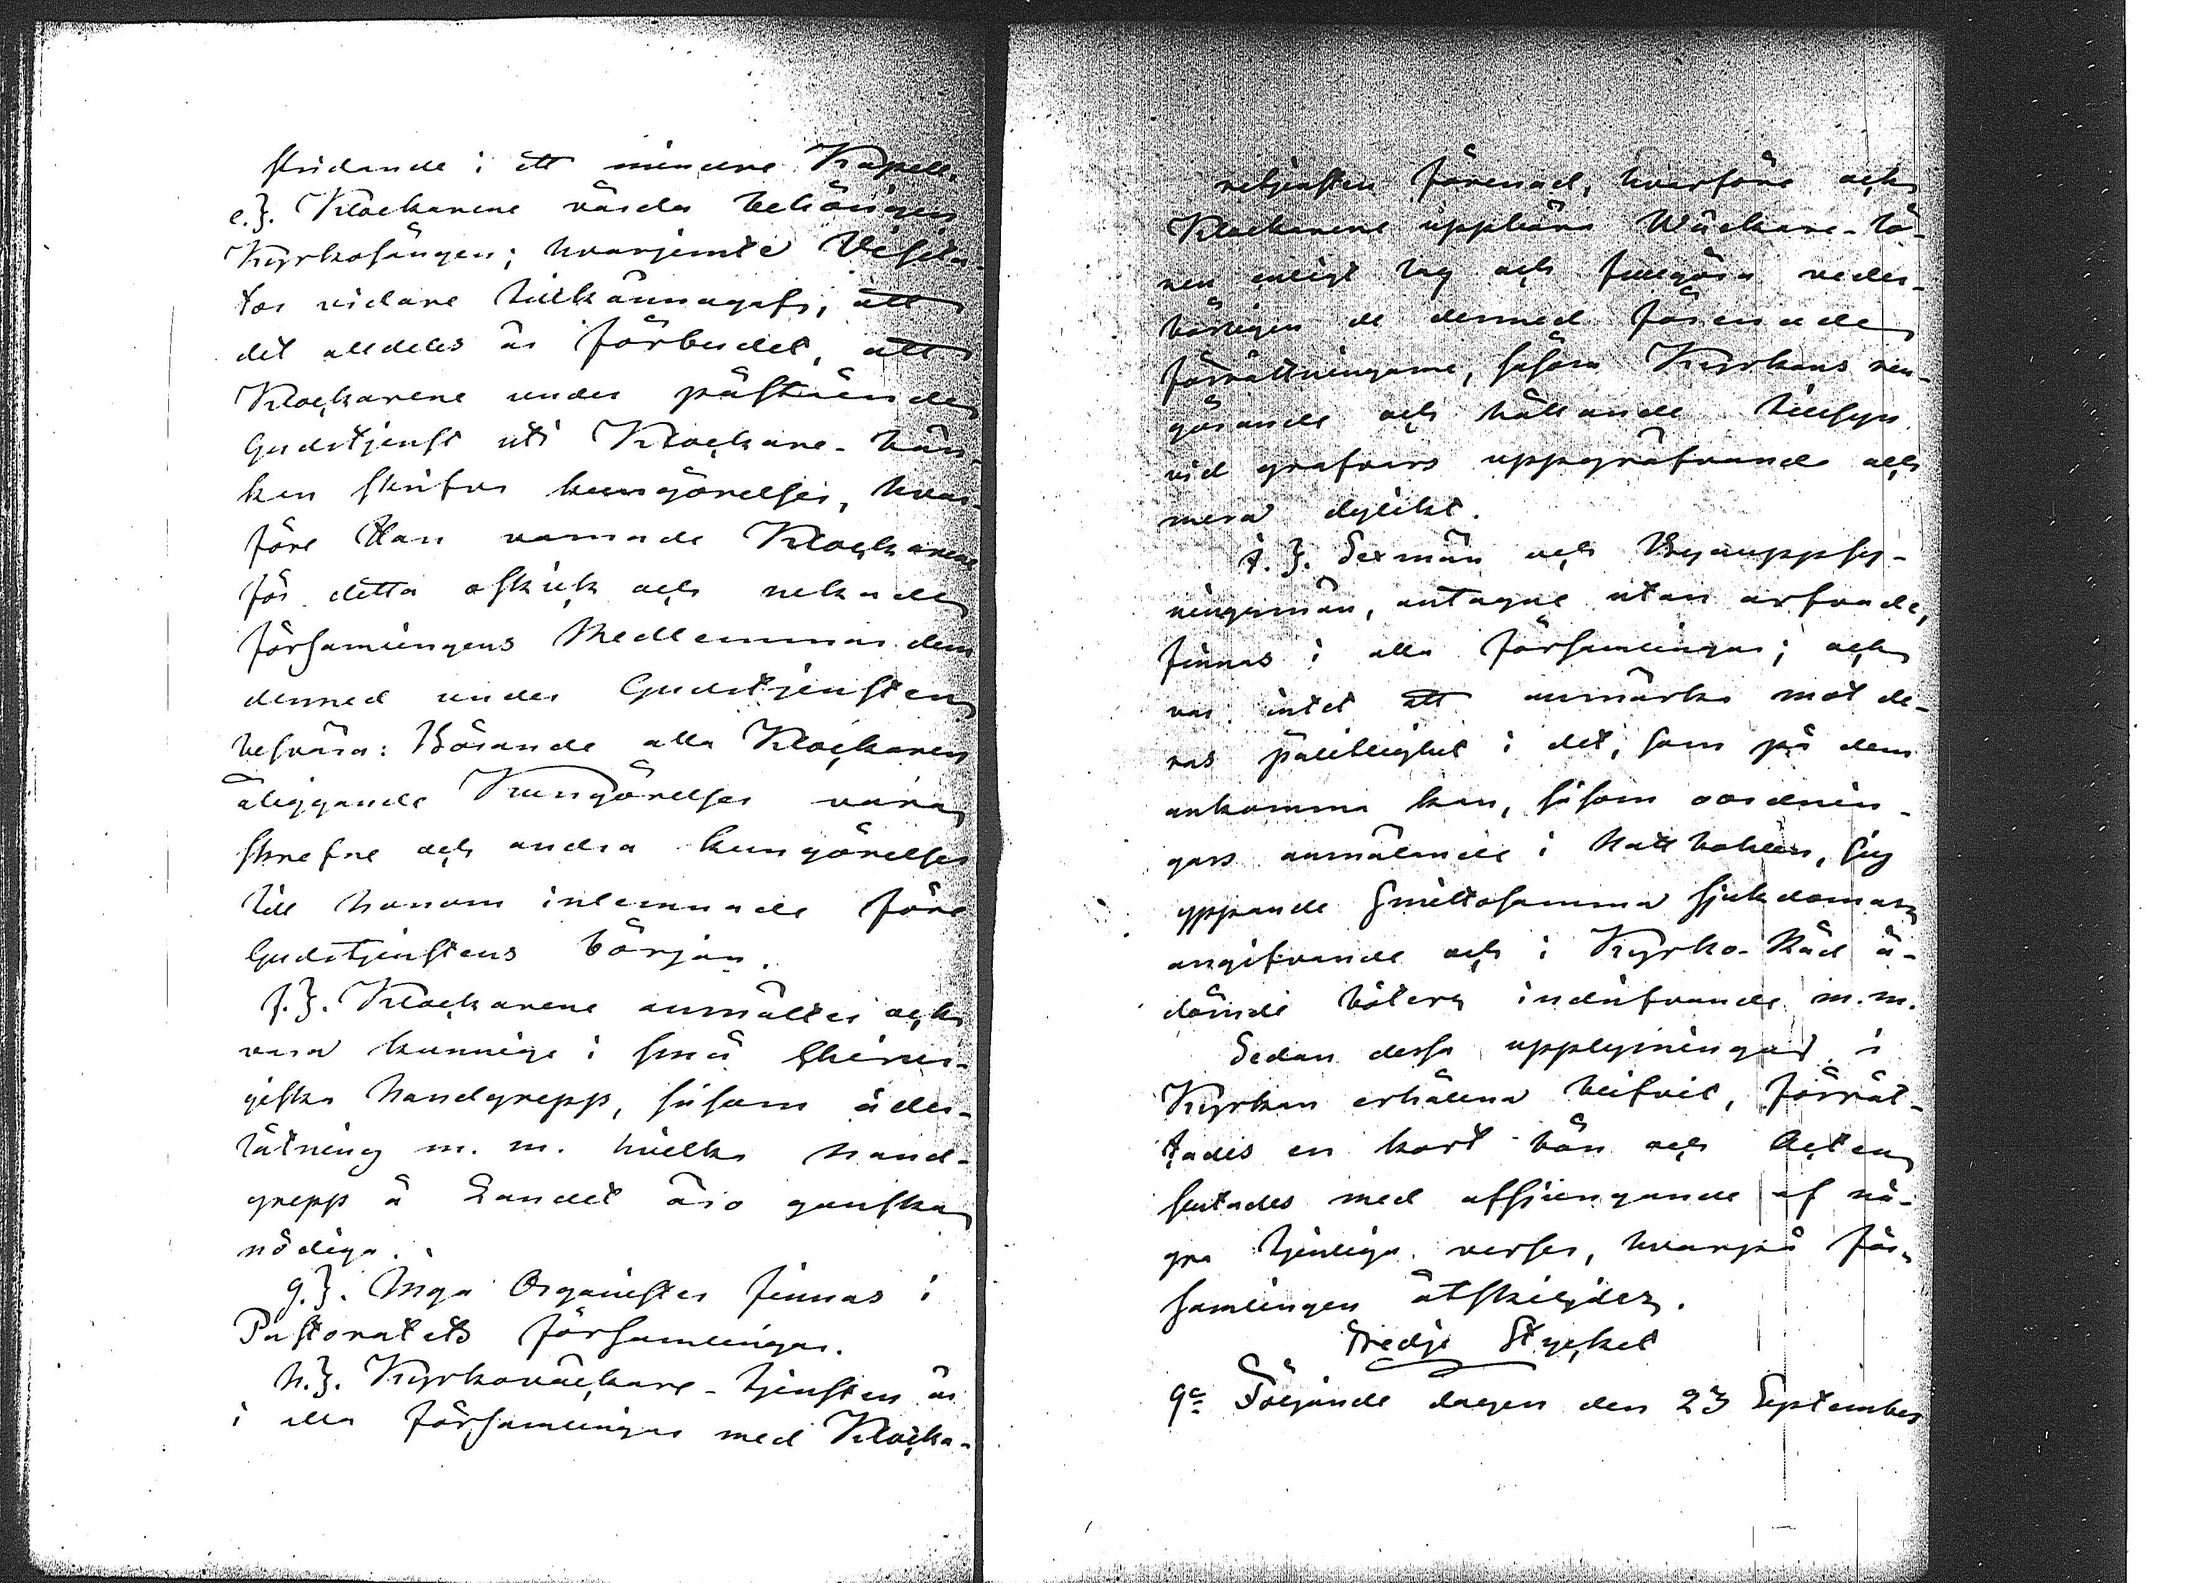 stridande i ett mindre Kapell.
e.}. Klockarene vårda behörigen
Kyrkosången; hvarjemte Visita-
tor vidare tillkännagaf, att
det alldeles är förbudet, att
Klockarene under påstående
Gudstjenst uti Klockare-bän-
ken skrifva kungörelser, hvar-
före Han varnade Klockarene
för detta oskick och nekade
församlingens Medlemmar dem
dermed under Gudstjensten
besvära: Börande alla Klockaren
åliggande Kungörelser vara
skrefne och andra kungörelser
till honom inlemnade före
Gudstjenstens början.
f.}. Klockarene anmältes och
vara kunnige i små Chirur-
giska handgrepp, såsom åder-
låtning m. m. hvilka hand-
grepp å Landet äro ganska
nödiga.
g.}. Inga Organister finnas i
Pastoratets församlingar.
h.}. Kyrkoväckare-tjensten är
i alla församlingar med Klocka-
retjensten förenad, hvarföre och
Klockarene uppbära Wäckare-lö-
nen enligt lag och fullgöra veder-
börligen de dermed förenade
förrättningarne, såsom Kyrkans ren-
görande och hållande tillsyn
vid grafvars uppgräfvande och
mera dylikt.
i.}. Sexmän och Byauppsy-
ningsmän, antagne utan arfvode,
finnas i alla församlingar; och
var intet att anmärka mot de-
ras pålitlighet i det, som på dem
ankomma kan, såsom oordnin-
gars anmälande i Nattvakten, sig
yppande smittosamma sjukdomars
angifvande och i Kyrko-Råd å-
dömde böters indrifvande m.m.
Sedan dessa upplysningar i
Kyrkan erhållna blifvit, förrät-
tades en kort bön och Acten
slutades med afsjungande af nå-
gra tjenliga verser, hvarpå för-
samlingen åtskiljdes.
Tredje Stycket
9:o Följande dagen den 23 September